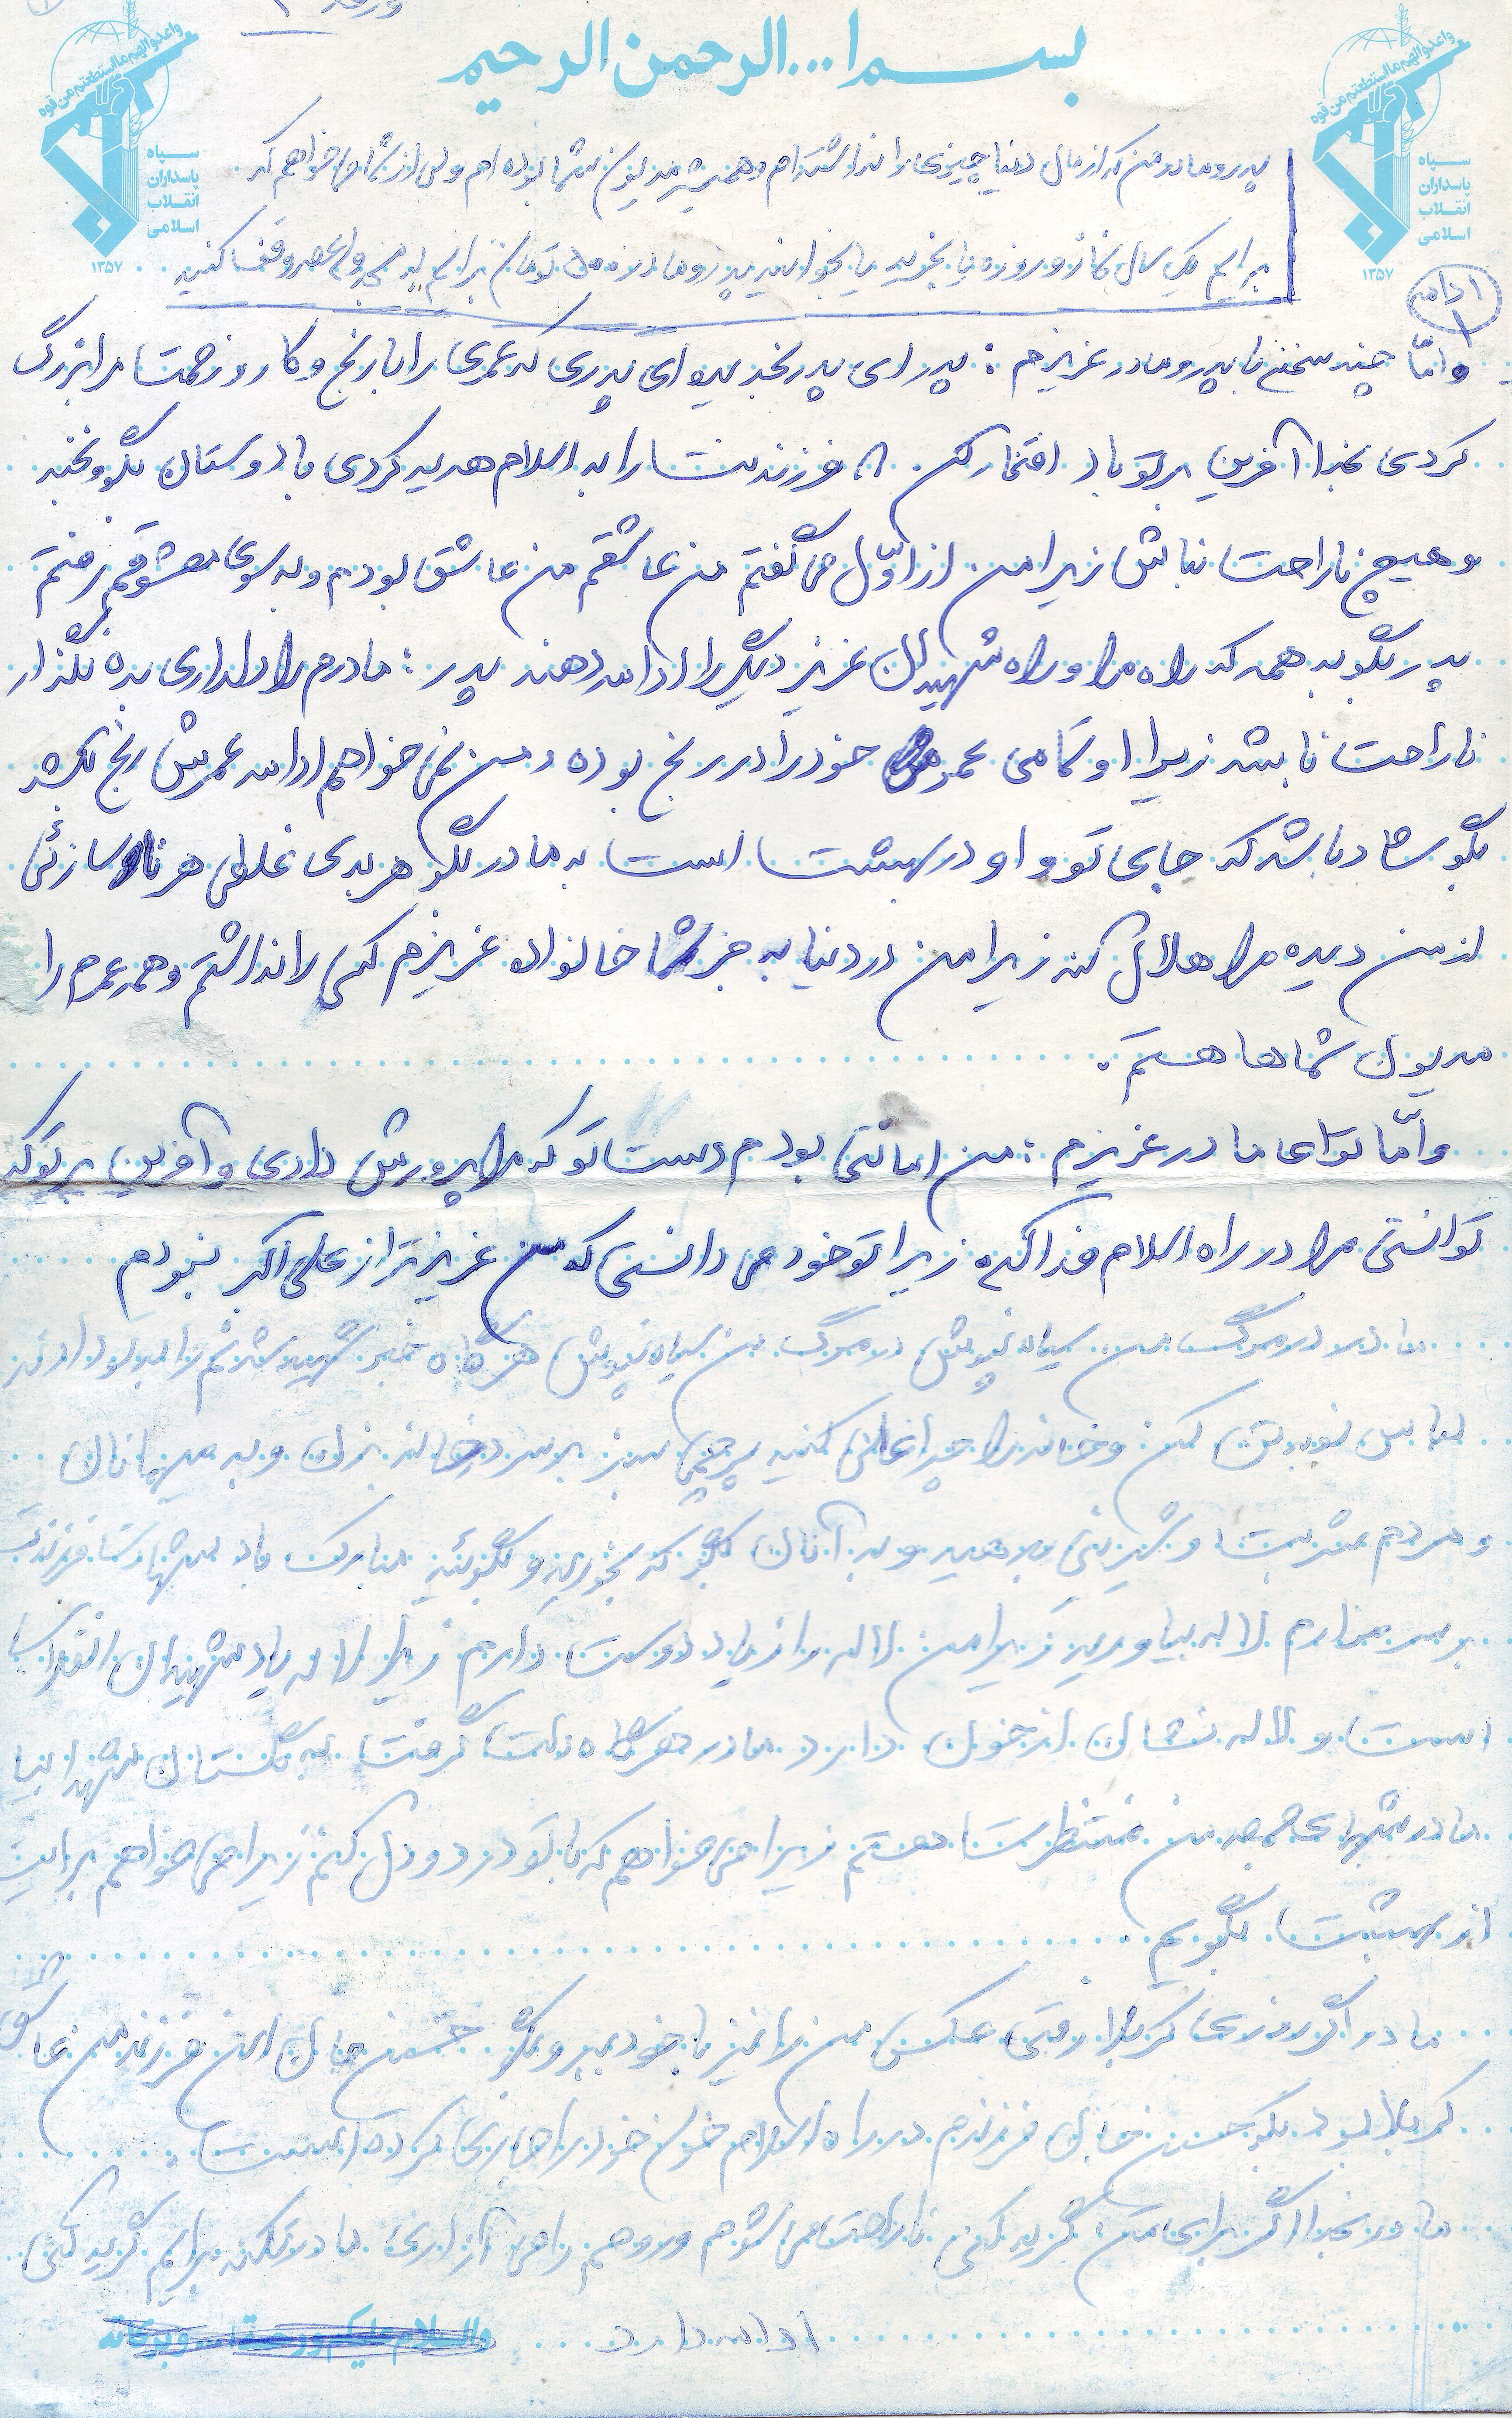 بسم ا...الرحمن الرحیم
واعدوالهم مااستطعتم من قوه
سپاه
پاسداران
انقلاب
اسلامی
۱۳۵۷
واعدوالهم مااستطعتم من قوه
سپاه
پاسداران
انقلاب
اسلامی
۱۳۵۷
پدر و مادر من که از مال دنیا چیزی را نداشته‌ام و همیشه مدیون شما بوده‌ام ولی از شما می‌خواهم که
برایم یک سال نماز و روزه یا بخرید یا بخوانید پدر و مادر تومان برایم به وقف کنید
ادامه ۱
و امّا چند سخنی با پدر و مادر عزیزم : پدر ای پدر ای پدری که عمری را با رنج و کار و زحمت مرا بزرگ
کردی بخدا آفرین بر تو باد افتخار کن فرزندت را به اسلام هدیه کردی با دوستان بگو و بخند
و هیچ ناراحت نباش زیرا من از اوّل می گفتم من عاشقم من عاشق بودم و به سوی معشوقم رفتم
پدر بگو به همه که راه مرا و راه شهیدان عزیز دیگر را ادامه دهند پدر : مادرم را دلداری بده نگذار
ناراحت باشد زیرا او تمامی عمر خود را در رنج بوده و من نمی خواهم ادامه عمرش رنج بکشد
بگو شاد باشد که جای تو و او در بهشت است به مادر بگو هر بدی غلطی هر ناسازگی
از من دیده مرا هلال کند زیرا من در دنیا به جز شما خانواده عزیزم کسی را نداشتم و همه عمرم را
مدیون شماها هستم .
و امّا تو ای مادر عزیزم : من امانتی بودم دست تو که مرا پرورش دادی و آفرین بر تو که
توانستی مرا در راه اسلام فدا کنی زیرا تو خود می دانستی که من عزیزتر از علی اکبر نبودم
مادر در مرگ من سیاه نپوش در مرگ من سیاه نپوش هرگاه خبر شهید شدنم را به تو دادند
لباس نو بپوش کن و خانه را چراغانی کنید پرچمی سبز بر سر در خانه بزن و به میهمانان
و مردم شربت و شیرینی بدهید و به آنان بگو که بخورید و بگوئید مبارک باد شهادت فرزندت
بر سر مزارم لاله بیاورید زیرا من لاله را زیاد دوست دارم زیرا لاله یاد شهیدان انقلاب
است و لاله نشان از خون دارد مادر هرگاه دلت گرفت به گلستان شهدا بیا
مادر شبهای جمعه من منتظرت هستم زیرا می خواهم که با تو درد و دل کنم زیرا می خواهم برایت
از بهشت بگویم
مادر اگر روزی کربلا رفتی عکس من را نیز با خود ببر و بگو حسین جان این فرزند من عاشق
کربلا بود بگو حسین جان فرزندم در راه اسلام خون خود را جاری کرده است .
مادر بخدا اگر برای من گریه کنی ناراحت می شوم و روحم را می آزاری مادر نکند برایم گریه کنی
ادامه دارد
والسلام علیکم و رحمةالله و برکاته